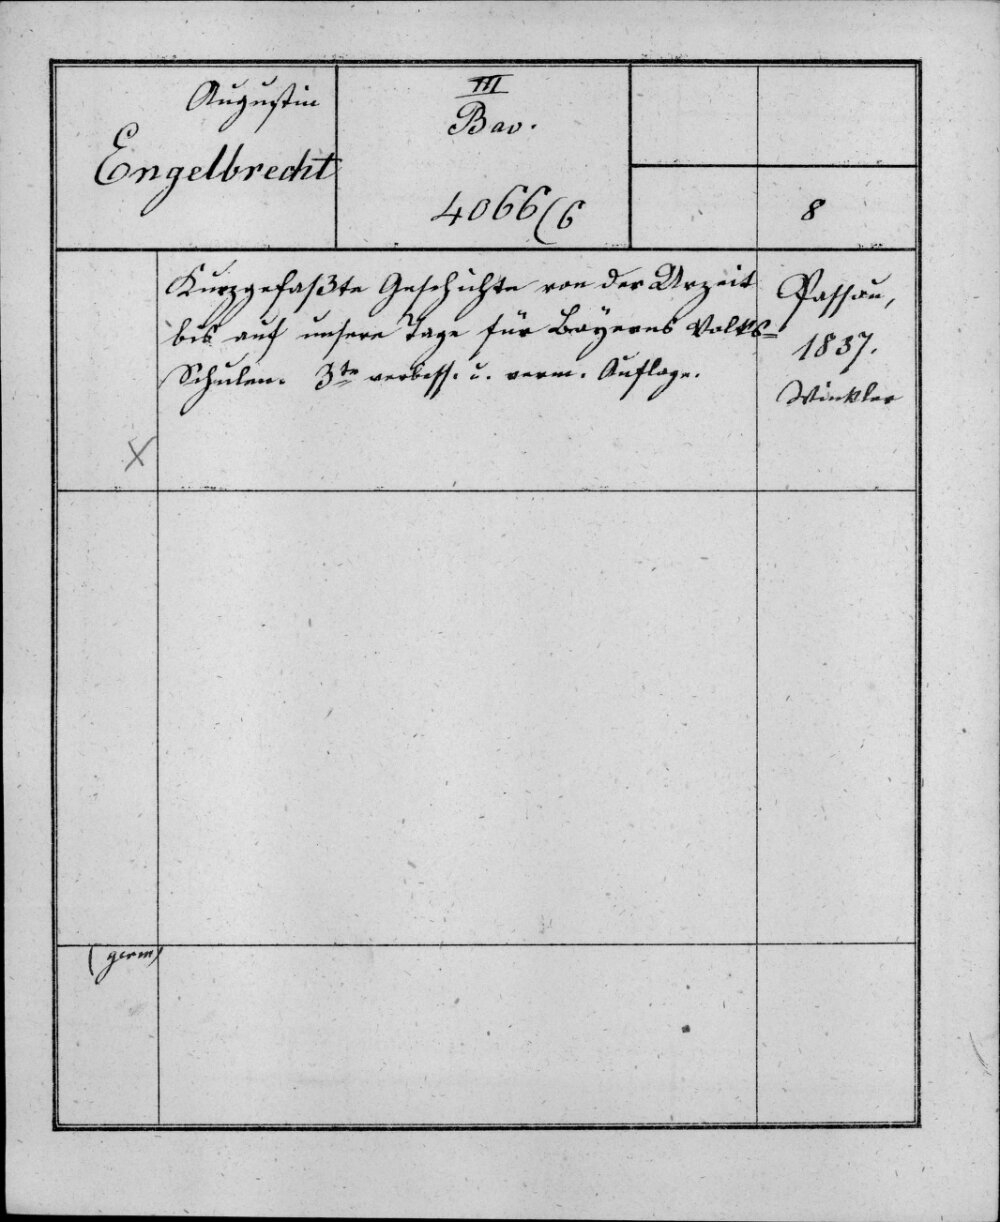 Augustin
Engelbrecht
III
Bav.
4066(6
8
Kurzgefaßte Geschichte von der Urzeit
bis auf unsere Tage für Bayerns Volks-
Schulen. 3te verbess. u. verm. Auflage.
Passau,
1837.
Winkler
X
(germ)